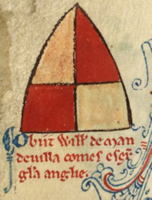 Obiit Will's de Man
devilla comes esex'
gl'a anglie.